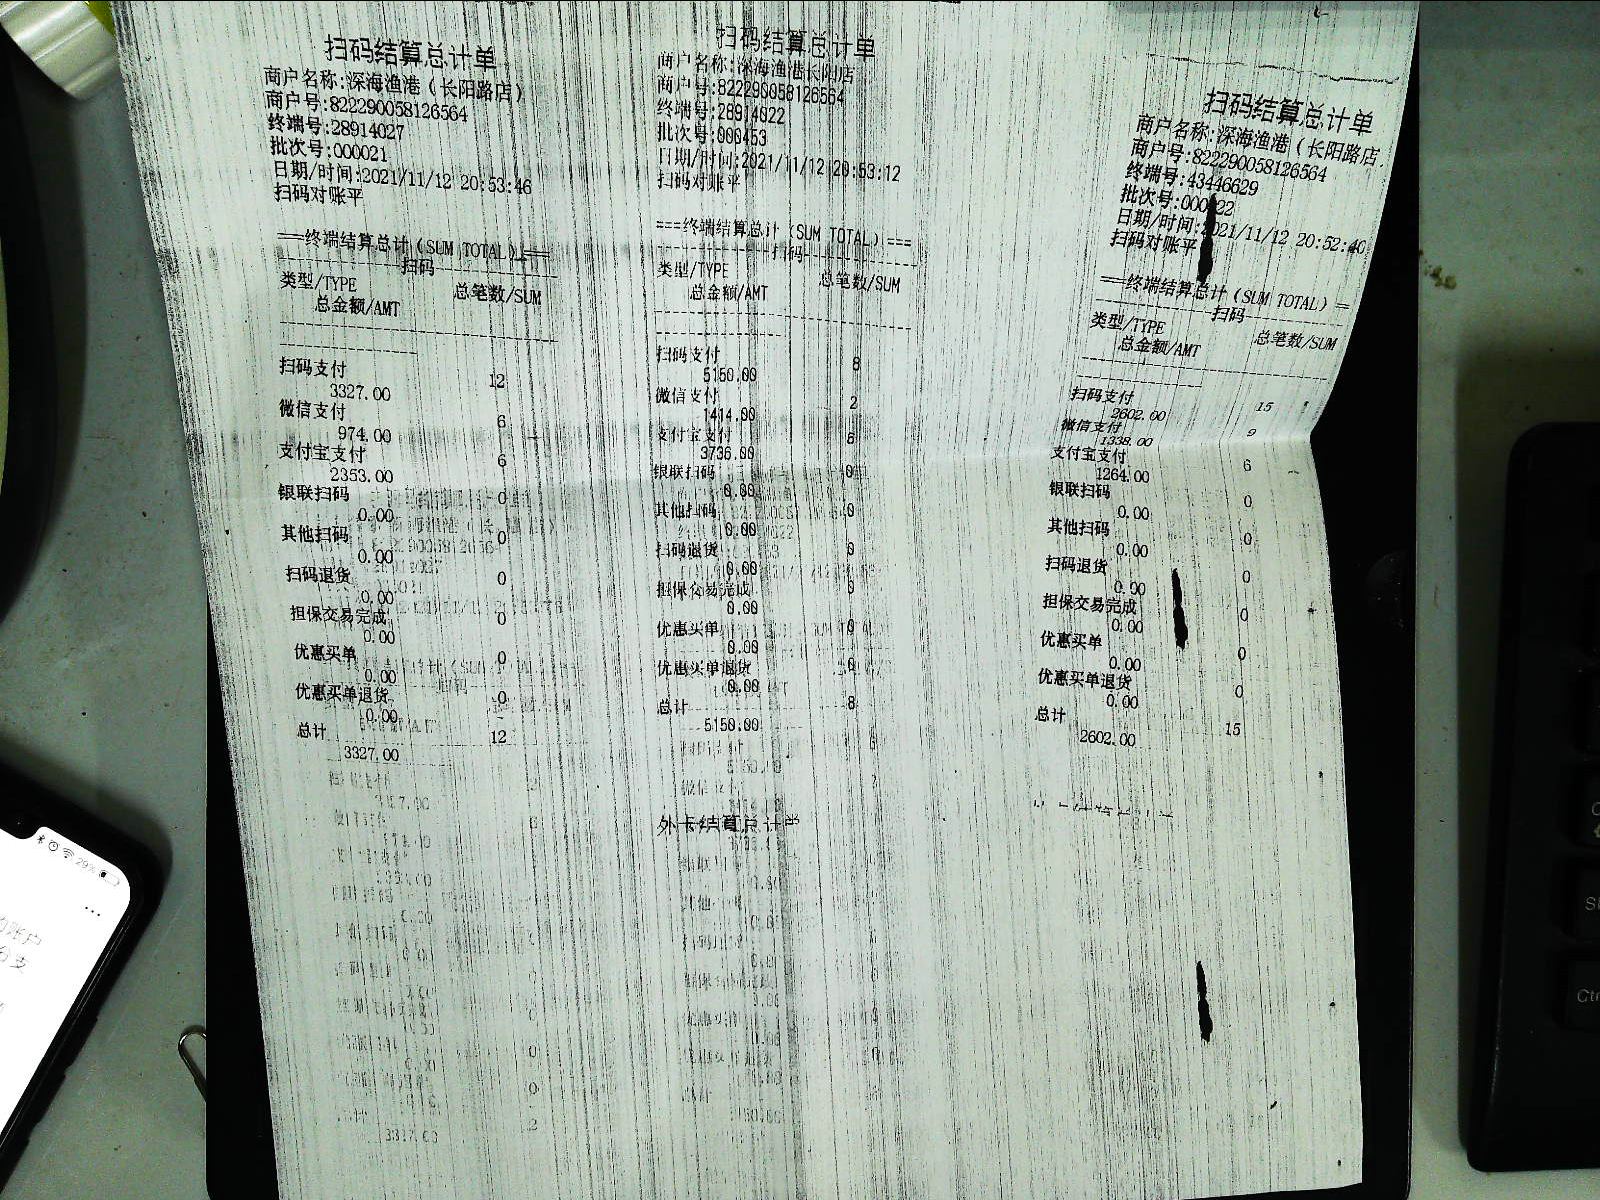 扫码结算总计单
商户名称:深海渔港(长阳路店)
商户号:822290058126564
终端号:28914027
批次号:000021
日期/时间:2021/11/12 20:53:46
扫码对账平
===终端结算总计(SUM TOTAL)===
扫码
类型/TYPE 总笔数/SUM
总金额/AMT
扫码支付 12
3327.00
微信支付 6
974.00
支付宝支付 6
2353.00
银联扫码 0
0.00
其他扫码 0
0.00
扫码退货 0
0.00
担保交易完成 0
0.00
优惠买单 0
0.00
优惠买单退货 0
0.00
总计 12
3327.00
扫码结算总计单
商户名称:深海渔港长阳店
商户号:822290058126564
终端号:28914022
批次号:000453
日期/时间:2021/11/12 20:53:12
扫码对账平
===终端结算总计(SUM TOTAL)===
扫码
类型/TYPE 总笔数/SUM
总金额/AMT
扫码支付 8
5150.00
微信支付 2
1414.00
支付宝支付 6
3736.00
银联扫码 0
0.00
其他扫码 0
0.00
扫码退货 0
0.00
担保交易完成 0
0.00
优惠买单 0
0.00
优惠买单退货 0
0.00
总计 8
5150.00
外卡结算总计单
扫码结算总计单
商户名称:深海渔港(长阳路店
商户号:822290058126564
终端号:43446629
批次号:000022
日期/时间:2021/11/12 20:52:40
扫码对账平
===终端结算总计(SUM TOTAL)=
扫码
类型/TYPE 总笔数/SUM
总金额/AMT
扫码支付 15
2602.00
微信支付 9
1338.00
支付宝支付 6
1264.00
银联扫码 0
0.00
其他扫码 0
0.00
扫码退货 0
0.00
担保交易完成 0
0.00
优惠买单 0
0.00
优惠买单退货 0
0.00
总计 15
2602.00
29%
账户
支
Ctr